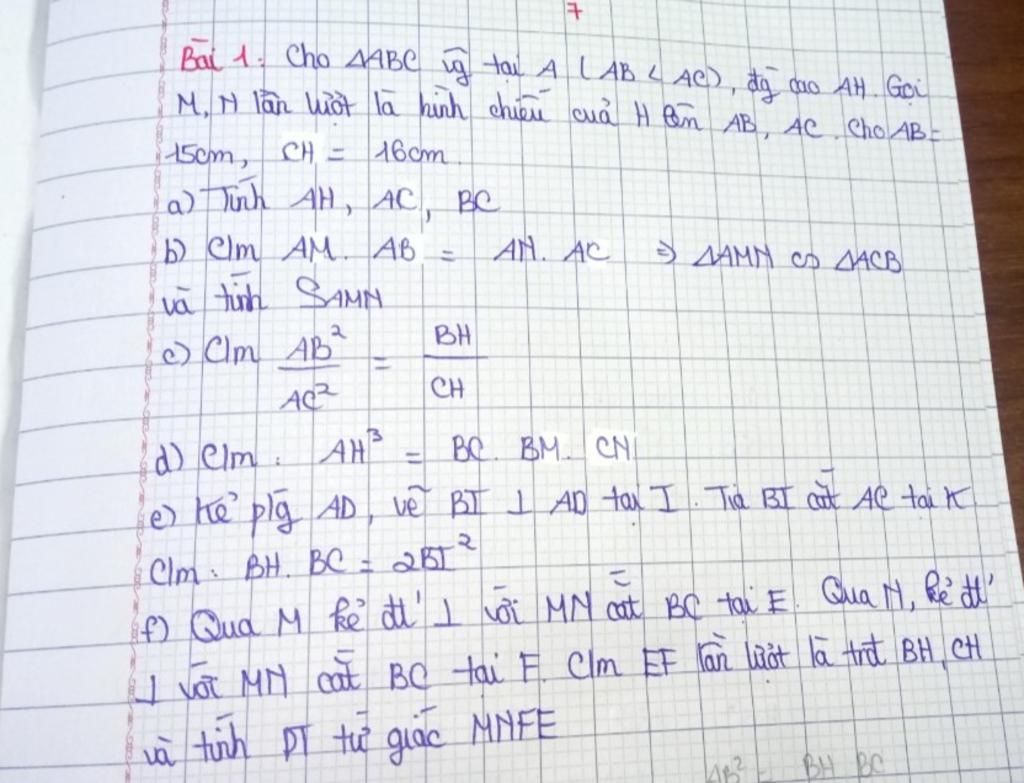 7
Bài 1. Cho ΔABC vg tại A (AB < AC), đg cao AH. Gọi
M, N lần lượt là hình chiếu của H lên AB, AC. Cho AB =
15cm, CH = 16cm.
a) Tính AH, AC, BC
b) C/m AM. AB = AN. AC ⇒ ΔAMN ∽ ΔACB
và tính SAMN
c) C/m AB²/AC² = BH/CH
d) C/m: AH³ = BC. BM. CN
e) Kẻ p/g AD, vẽ BI ⊥ AD tại I. Tia BI cắt AC tại K
C/m: BH. BC = 2BI²
f) Qua M kẻ đt' ⊥ với MN cắt BC tại E. Qua N, kẻ đt'
⊥ với MN cắt BC tại F. C/m EF lần lượt là trđ BH, CH
và tính DT tứ giác MNFE
AB² = BH BC